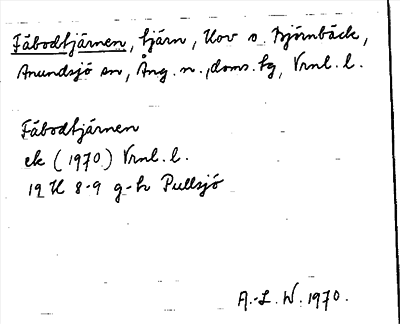 Fäbodtjärnen, tjärn, Hov o. Björnbäck,
Anundsjö sn, Ång. n., doms. hg, Vrnl. l.
Fäbodtjärnen
ek (1970) Vrnl. l.
19 H 8-9 g-h Pullsjö
A.-L. W. 1970.